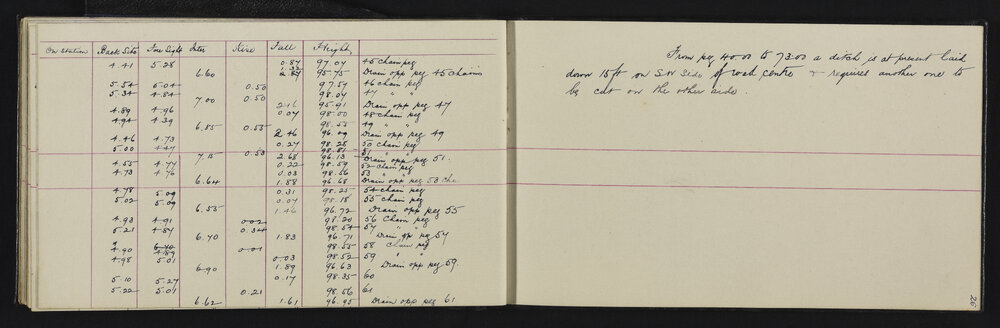 On Station Back Site Fore Sight Inter Rise Fall Height
4.41 5.28 0.87 97.04 45 chain peg
6.60 95.75 Drain opp peg 45 chains
5.54 5.04 0.50 97.54 46 chain peg
5.34 4.84 0.50 98.04 47 " "
7.00 2.16 95.91 Drain opp peg 47
4.89 4.96 0.07 98.00 48 chain peg
4.94 4.39 0.55 98.55 49 " "
6.85 2.46 96.09 Drain opp peg 49
4.46 4.73 0.27 98.28 50 chain peg
5.00 4.47 0.53 98.81 51 " "
7.15 2.68 96.13 Drain opp peg 51.
4.55 4.77 0.22 98.59 52 chain peg
4.73 4.76 0.03 98.56 53 " "
6.64 1.88 96.68 Drain opp peg 53 cha
4.78 5.09 0.31 98.25 54 chain peg
5.02 5.09 0.07 98.18 55 chain peg
6.55 1.46 96.72 Drain opp peg 55
4.93 4.91 0.02 98.20 56 Chain peg
5.21 4.87 0.34 98.54 57 " "
6.70 1.83 96.71 Drain opp peg 57
4.90 4.89 0.01 98.55 58 Chain peg
4.98 5.01 0.03 98.52 59 " "
6.90 1.89 96.63 Drain opp peg 59.
5.10 5.27 0.17 98.35 60
5.22 5.01 0.21 98.56 61
6.62 1.61 96.95 Drain opp peg 61
From peg 40.00 to 73.00 a ditch is at present laid
down 15ft on S.W side of road centre & requires another one to
be cut on the other side.
26